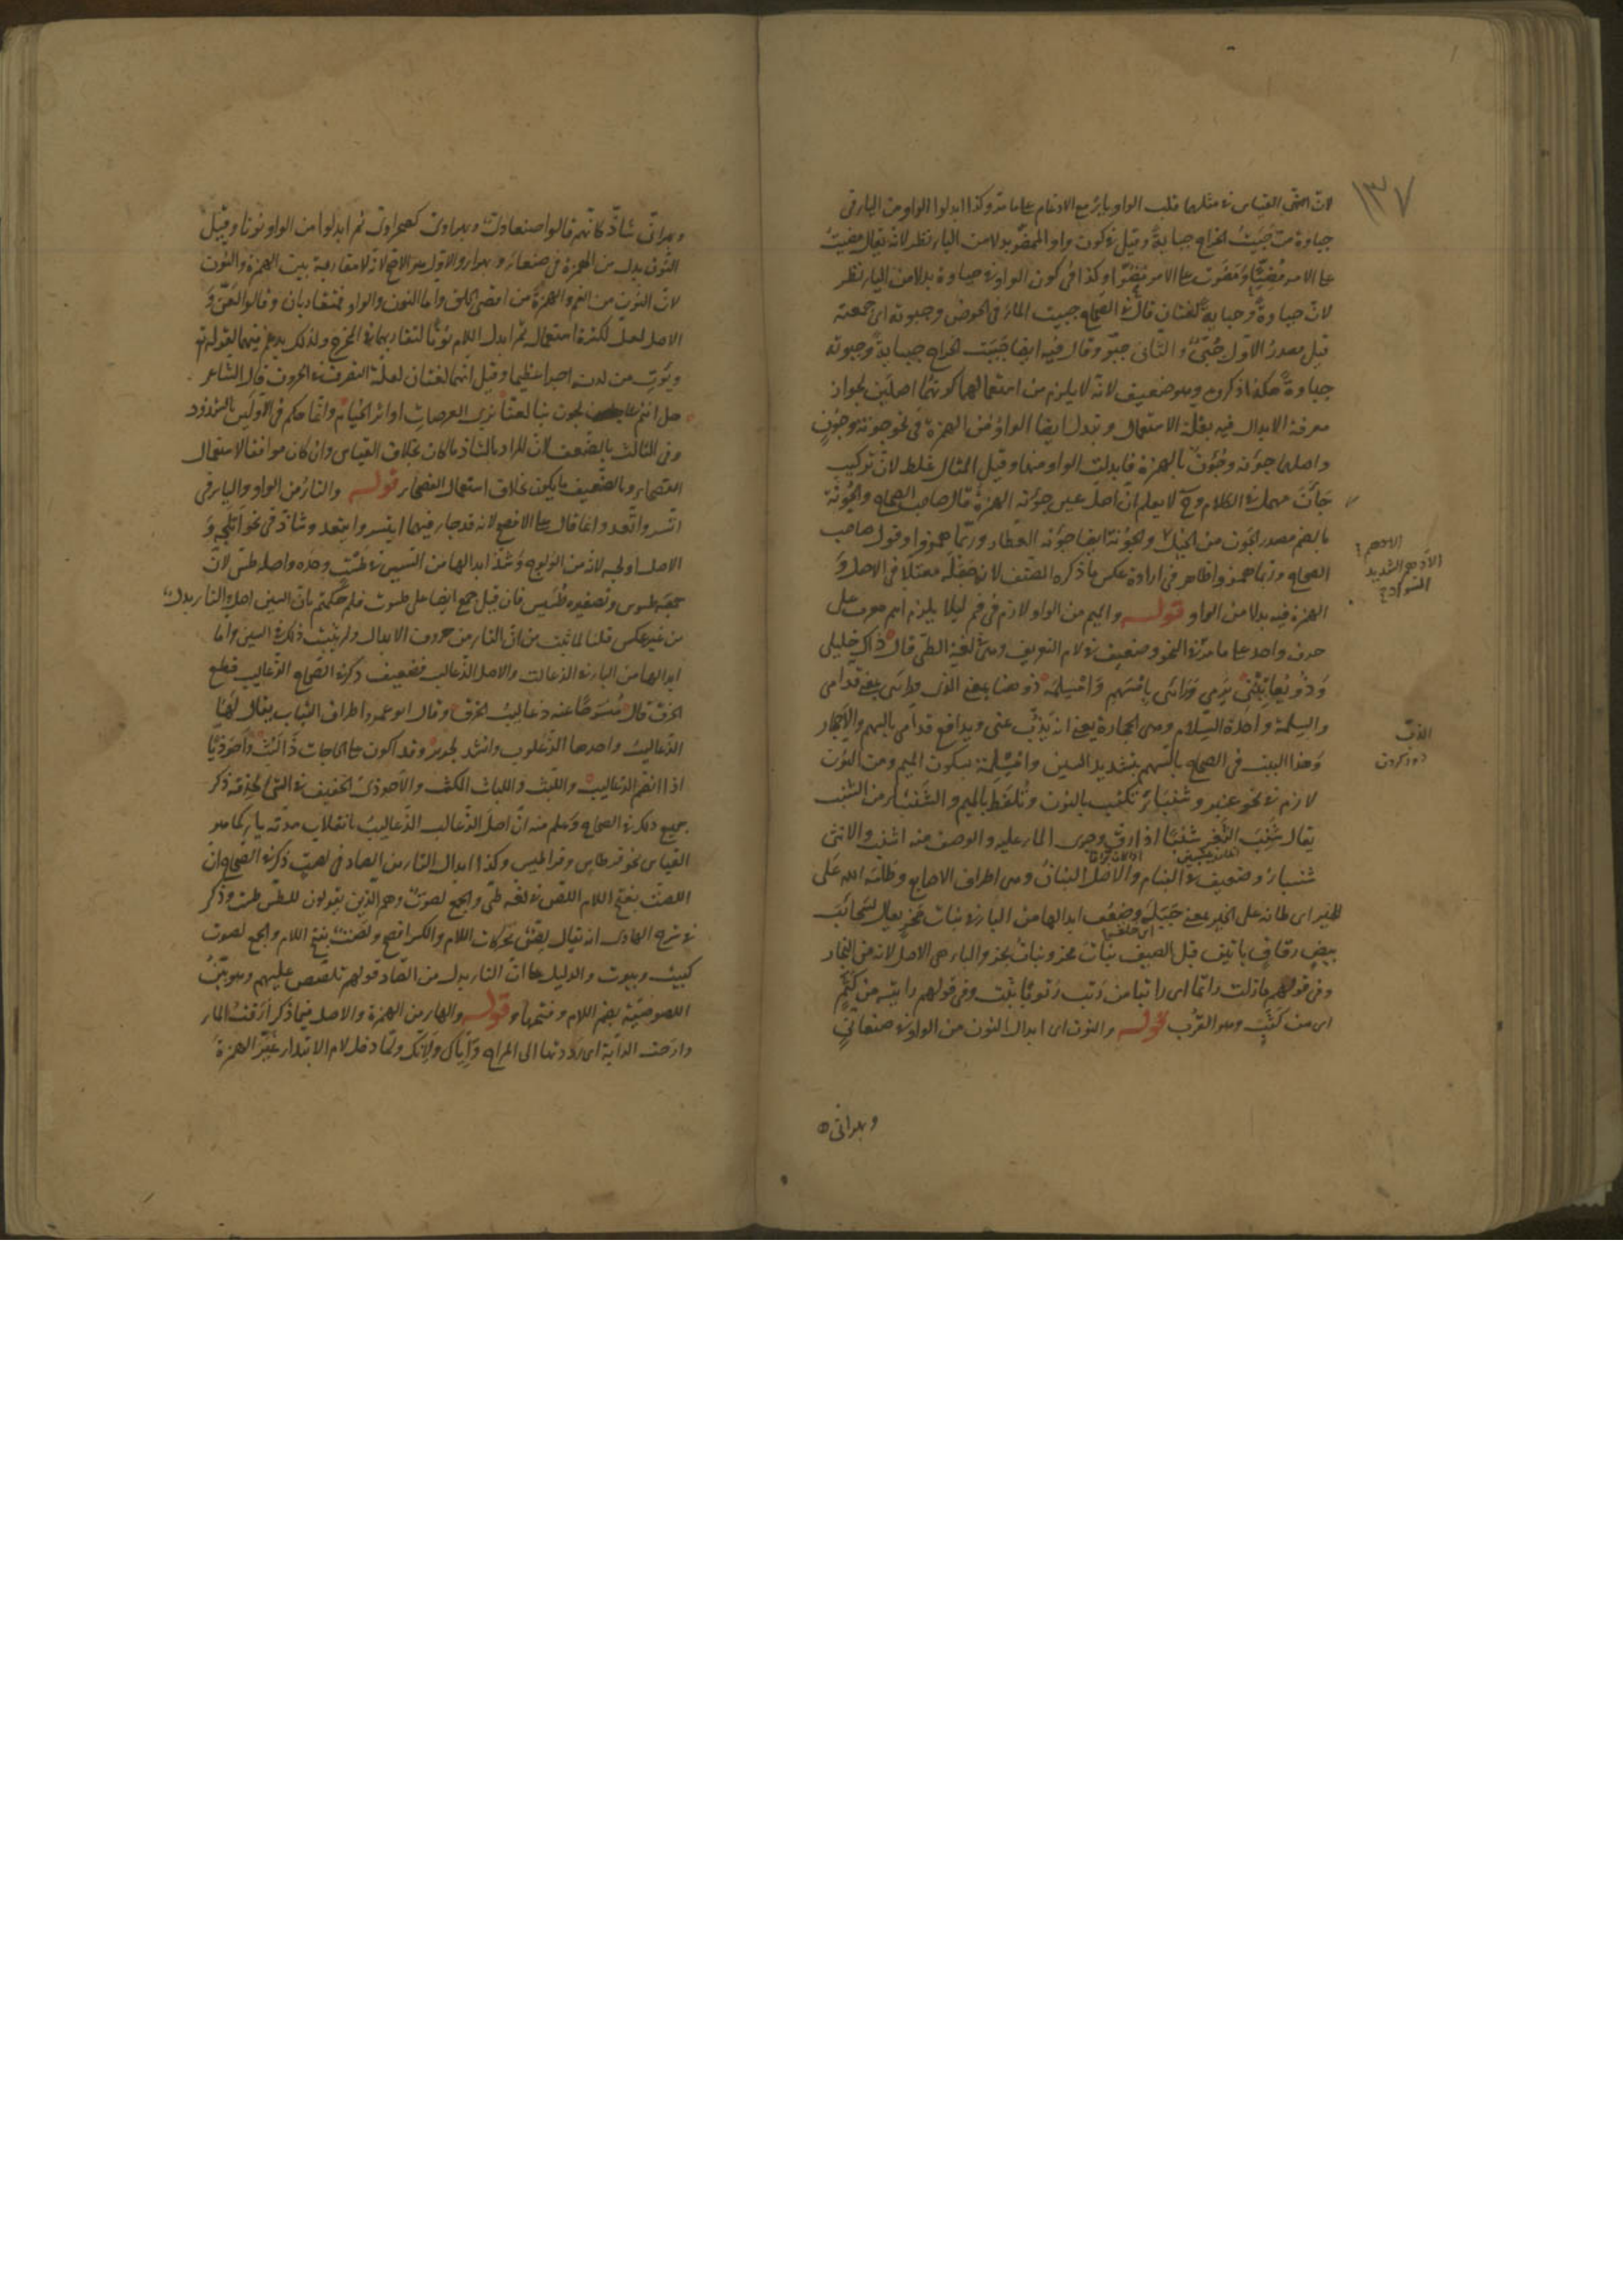 ١٣٧
لان القياس في مثلهما قلب الواو ياء مع الادغام على ما مر وكذا ابدلوا الواو من الياء في
جباوة من جبيت الخراج جباية وقيل في كون واو الممضو بدلا من الياء نظر لانه يقال مضيت
على الامر مضيا ومضوت على الامر مضوا وكذا في كون الواو في جباوة بدلا من الياء نظر
لان جباوة وجباية لغتان قال في الصحاح جبيت الماء في الحوض وجبوته اى جمعته
قيل مصدر الاول جبى والثانى جبو وقال فيه ايضا جبيت الخراج جباية وجبوته
جباوة هكذا ذكروه وهو ضعيف لانه لا يلزم من استعمالهما كونهما اصلين لجواز
معرفة الابدال فيه بقلة الاستعمال وتبدل ايضا الواو من الهمزة في نحو جونة وجون
واصلهما جؤنة وجؤن بالهمزة فابدلت الواو منها وقيل المثال غلط لان تركيب
جأن مهمل في الكلام وح لا يعلم ان اصل عين جونة الهمزة قال صاحب الصحاح والجونة
بالضم مصدر الجون من الخيل والجونة ايضا جونة العطار وربما همزوا وقول صاحب
الصحاح وربما همزوا ظاهر في ارادة عكس ما ذكره المصنف لانه جعله معتلا في الاصل و
الهمزة فيه بدلا من الواو قوله والميم من الواو لازم في فم ليلا يلزم اسم معرب على
حرف واحد على ما مر في النحو وضعيف في لام التعريف وهى لغة الطى قال ذاك خليلى
وذو يعاتبنى يرمى ورائى بامسهم وامسلمه ذو هنا بمعنى الذى ورائى بمعنى قدامى
والسلمة واحدة السلام وهى الحجارة يعنى انه يذب عنى ويدافع قدامى بالسهم والاحجار
وهذا البيت في الصحاح بالسهم بتشديد السين وامسلمة بسكون الميم ومن النون
لازم في نحو عنبر وشنباء تكتب بالنون وتلفظ بالميم والشنباء من الشنب
يقال شنب الثغر شنبا اذا رق وجرى الماء عليه والوصف منه اشنب والانثى
شنباء وضعيف في البنام والاصل البنان وهى اطراف الاصابع وطامه الله على
الخير اى طانه على الخير بمعنى جبله وضعف ابدالها من الباء في بنات مخر يقال لسحائب
بيض رقاق ياتين قبل الصيف بنات مخر وبنات بخر والباء هى الاصل لانه من البخار
وفى قولهم ما زلت راتما اى راتبا من رتب رتوبا ثبت وفى قولهم رايته من كثم
اى من كثب وهو القرب قوله والنون اى ابدال النون من الواو في صنعانى
وبهرانى
الادهم
الادهم الشديد
السواد
الذب
دور كردن
وبهرانى شاذ كانهم قالوا صنعاوى وبهراوى كصحراوى ثم ابدلوا من الواو نونا وقيل
النون بدل من الهمزة في صنعاء وبهراء والاول هو الاصح لانه لا مقاربة بين الهمزة والنون
لان النون من الفم والهمزة من اقصى الحلق واما النون والواو فمتقاربان وقالوا لعن و
الاصل لعل لكثرة استعماله ثم ابدل اللام نونا لتقاربهما في المخرج ولذلك يدغم فيها كقوله تع
ويؤت من لدنه اجرا عظيما وقيل انهما لغتان لقلة التصرف في الحروف قال الشاعر
هل انتم عايجون بنا لعنا نرى العرصات او اثر الخيام وانما حكم في الاولين بالشذوذ
وفى الثالث بالضعف لان المراد بالشاذ ما كان بخلاف القياس وان كان موافقا لاستعمال
الفصحاء وبالضعيف ما يكون بخلاف استعمال الفصحاء قوله والتاء من الواو والياء في
اتسر واتعد وانما قال على الافصح لانه قد جاء فيهما ايتسر وايتعد وشاذ في نحو اتلج و
الاصل اولج لانه من الولوج وشذ ابدالها من السين في طست وحده واصله طس لان
جمعه طسوس وتصغيره طسيس فان قيل جمع ايضا على طسوت فلم حكمتم بان السين اصل والتاء بدل
من غير عكس قلنا لما ثبت من ان التاء من حروف الابدال ولم يثبت ذلك في السين واما
ابدالها من الباء في الذعالت والاصل الذعالب فضعيف ذكر في الصحاح الذعاليب قطع
الخرق قال منسرحا عنه ذعاليب الخرق وقال ابو عمرو اطراف الثياب يقال لها
الذعاليب واحدها الذعلوب وانشد لجرير وقد اكون على الحاجات ذا لبث واحوذيا
اذا انضم الذعاليب واللبث واللباث المكث والاحوذى الخفيف في الشئ لحذقه ذكر
جميع ذلك في الصحاح وعلم منه ان اصل الذعالب الذعاليب بانقلاب مدته ياء كما هو
القياس نحو قرطاس وقراطيس وكذا ابدال التاء من الصاد في لصت ذكر في الصحاح ان
اللصت بفتح اللام اللص في لغة طى والجمع لصوت وهم الذين يقولون للطس طست وذكر
في شرح الهادى انه يقال لص بحركات اللام والكسر افصح ولصت بفتح اللام والجمع لصوت
كبيت وبيوت والدليل على ان التاء بدل من الصاد قولهم تلصص عليهم وهو بين
اللصوصية بضم اللام وفتحها وقوله والهاء من الهمزة والاصل فيما ذكر ارقت الماء
وارحت الدابة اى رددتها الى المراح واياك ولانك ولما دخل لام الابتداء غير الهمزة